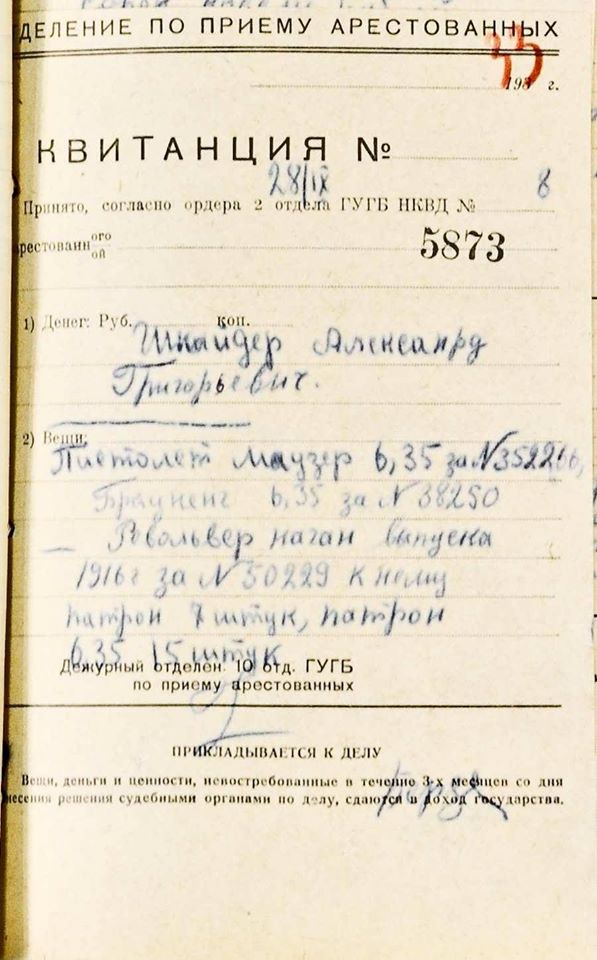 ДЕЛЕНИЕ ПО ПРИЕМУ АРЕСТОВАННЫХ
33
193 г.
КВИТАНЦИЯ №
28/IX 8
Принято, согласно ордера 2 отдела ГУГБ НКВД №
арестованн ого ой 5873
1) Денег: Руб. коп.
Шнайдер Александр
Григорьевич.
2) Вещи:
Пистолет маузер 6,35 за N 352266,
Браунинг 6,35 за N 38250
Револьвер наган выпуска
1916 г за N 50229 к нему
патрон 7 штук, патрон
6,35 15 штук
Дежурный отделен. 10 отд. ГУГБ
по приему арестованных
ПРИКЛАДЫВАЕТСЯ К ДЕЛУ
Вещи, деньги и ценности, невостребованные в течение 3-х месяцев со дня
несения решения судебными органами по делу, сдаются в доход государства.